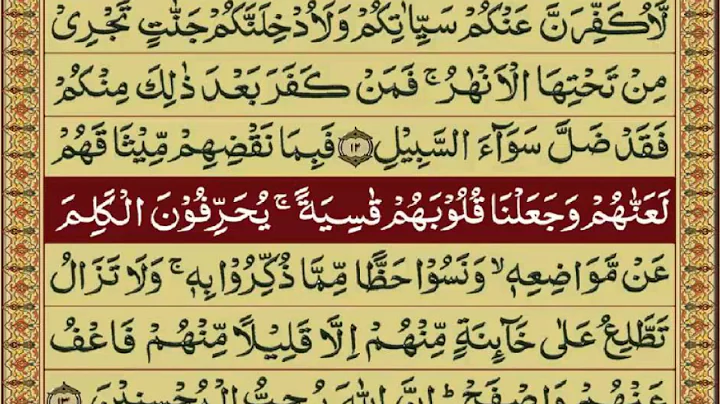 لَّاُكَفِّرَنَّ عَنْكُمْ سَيِّاٰتِكُمْ وَلَاُدْخِلَنَّكُمْ جَنّٰتٍ تَجْرِىْ
مِنْ تَحْتِهَا الْاَنْهٰرُ ۚ فَمَنْ كَفَرَ بَعْدَ ذٰلِكَ مِنْكُمْ
فَقَدْ ضَلَّ سَوَآءَ السَّبِيْلِ ﴿۱۲﴾ فَبِمَا نَقْضِهِمْ مِّيْثَاقَهُمْ
لَعَنّٰهُمْ وَجَعَلْنَا قُلُوْبَهُمْ قٰسِيَةً ۚ يُحَرِّفُوْنَ الْكَلِمَ
عَنْ مَّوَاضِعِهٖ ۙ وَنَسُوْا حَظًّا مِّمَّا ذُكِّرُوْا بِهٖ ۚ وَلَا تَزَالُ
تَطَّلِعُ عَلٰى خَآئِنَةٍ مِّنْهُمْ اِلَّا قَلِيْلًا مِّنْهُمْ فَاعْفُ
عَنْهُمْ وَاصْفَحْ ؕ اِنَّ اللّٰهَ يُحِبُّ الْمُحْسِنِيْنَ ﴿۱۳﴾